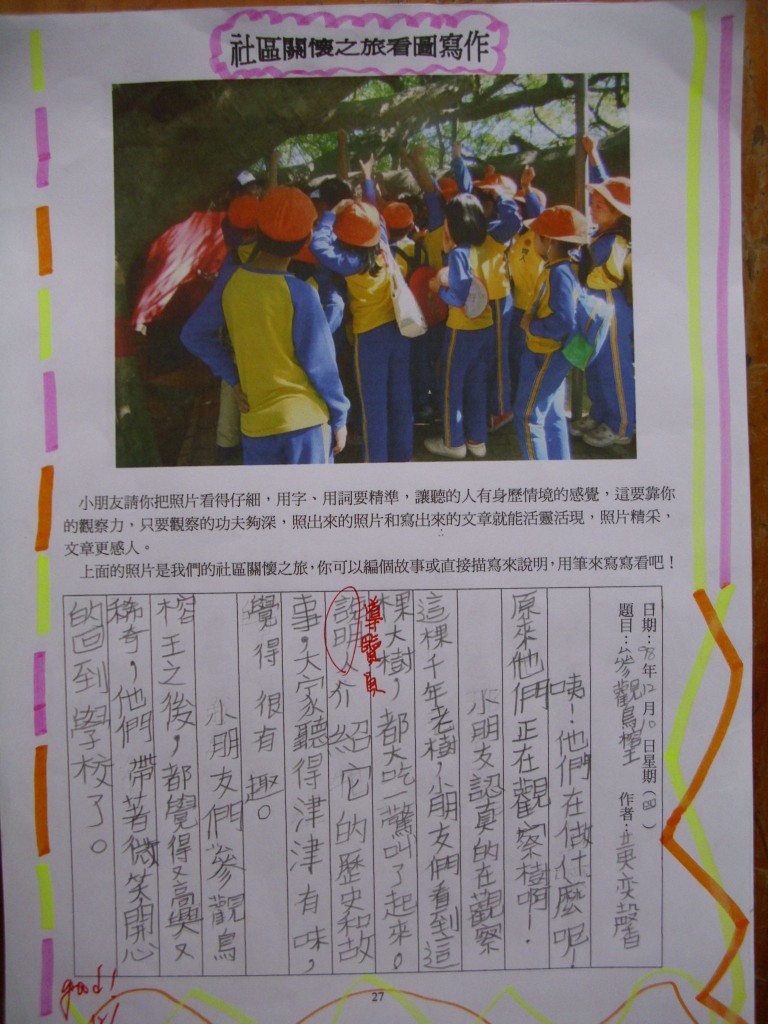 社區關懷之旅看圖寫作
小朋友請你把照片看得仔細，用字、用詞要精準，讓聽的人有身歷情境的感覺，這要靠你
的觀察力，只要觀察的功夫夠深，照出來的照片和寫出來的文章就能活靈活現，照片精采，
文章更感人。
上面的照片是我們的社區關懷之旅，你可以編個故事或直接描寫來說明，用筆來寫寫看吧！
日期：98年12月10日星期（四）
題目：參觀鳥榕王 作者：
咦！他們在做什麼呢！
原來他們正在觀察樹啊！
小朋友認真的在觀察
這棵千年老樹，小朋友們看到這
棵大樹，都大吃一驚叫了起來。
導覽員
說明，介紹它的歷史和故
事，大家聽得津津有味，
覺得很有趣。
小朋友們參觀鳥
榕王之後，都覺得又高興又
稀奇，他們帶著微笑開心
的回到學校了。
good！
27